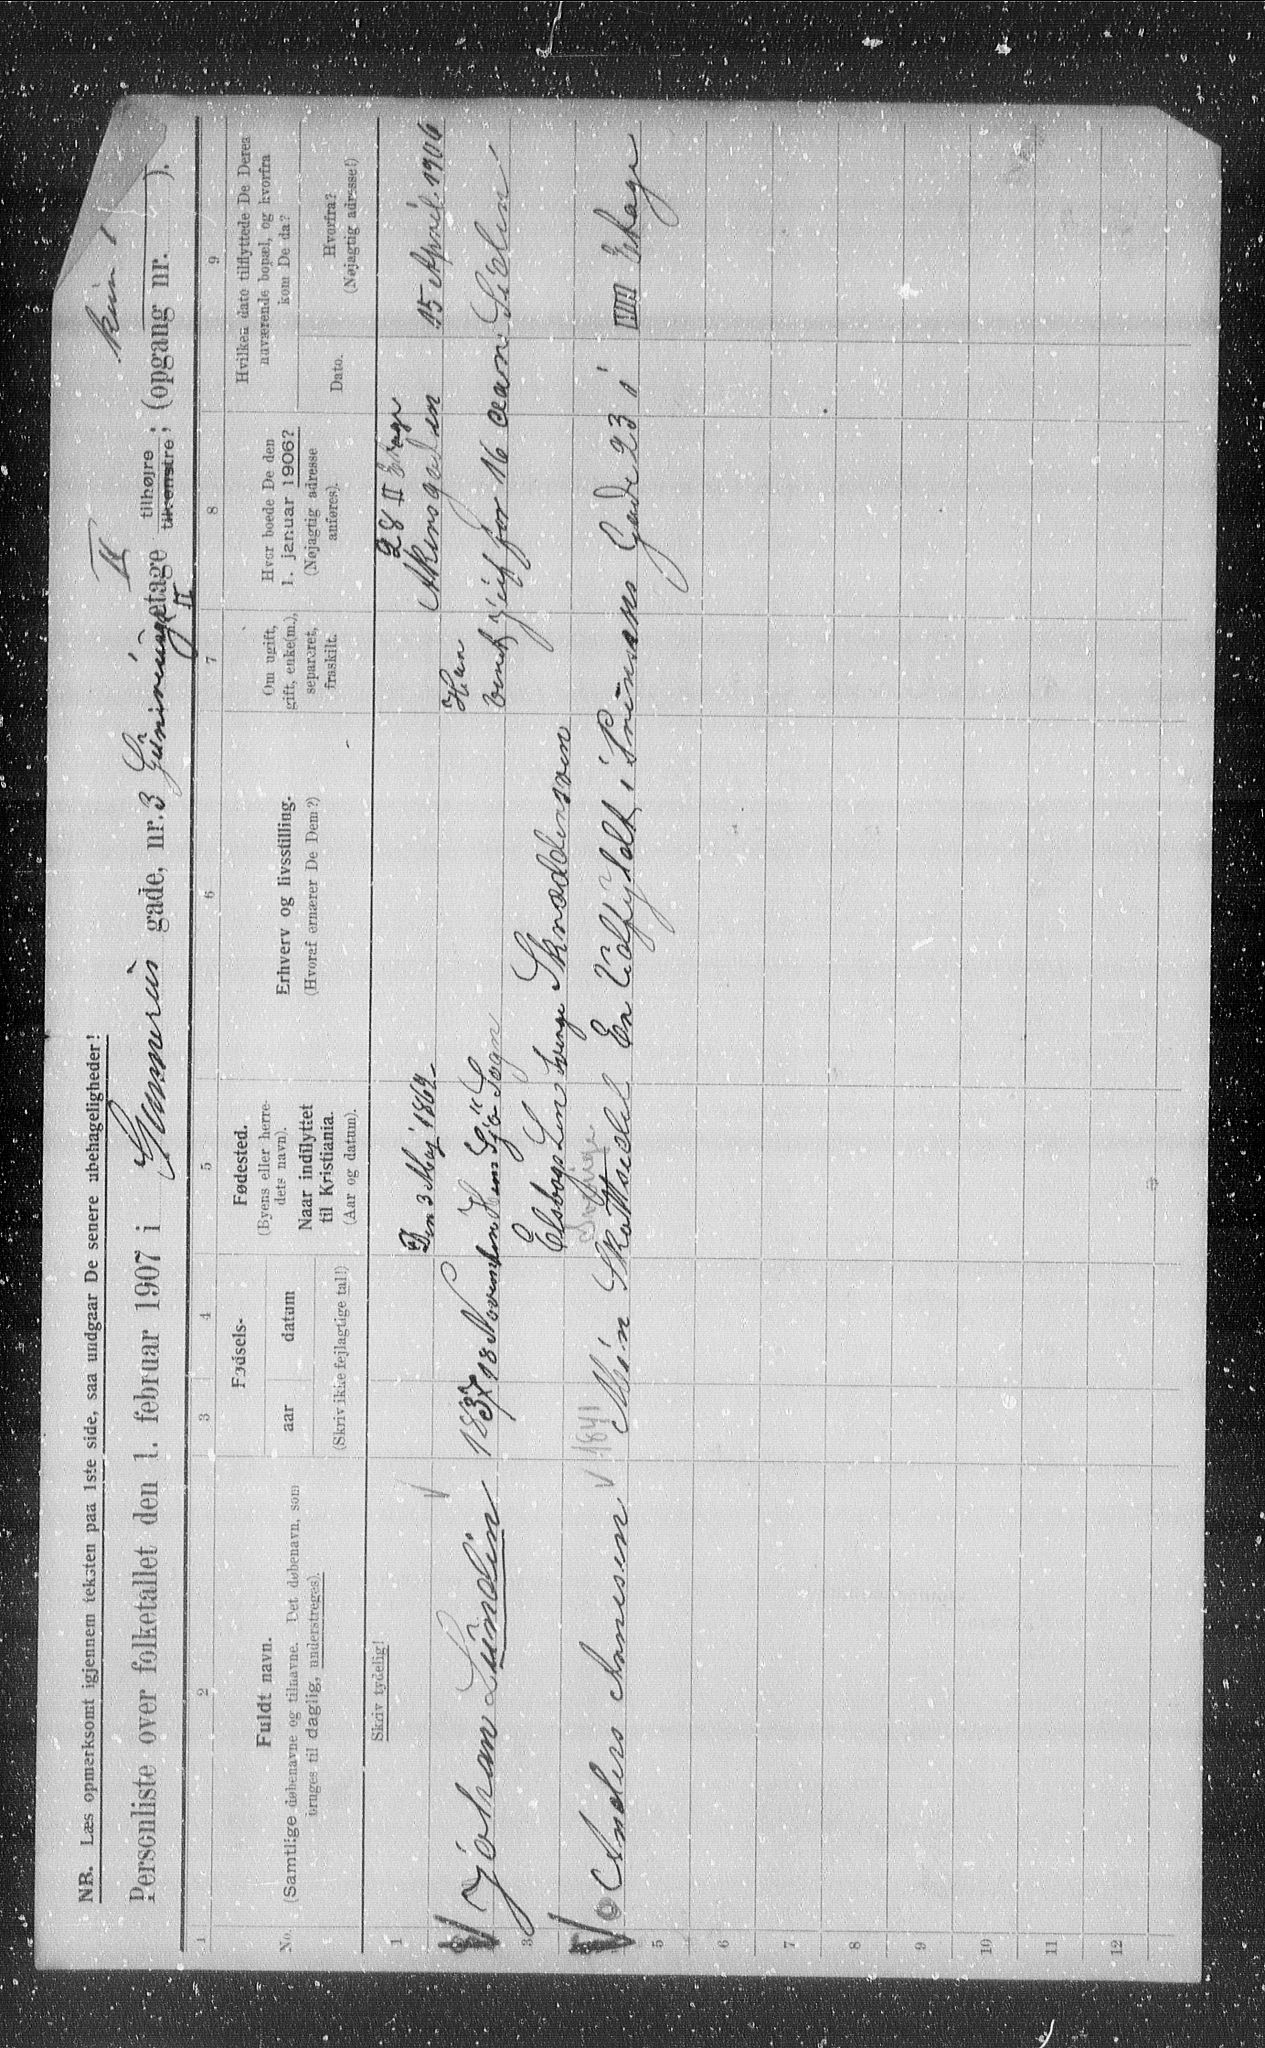 NB. Læs opmerksomt igjennem teksten paa 1ste side, saa undgaar De senere ubehageligheder!
II
Personliste over folketallet den 1. februar 1907 i Gunnerius gade, nr. 3 etage tilhøjre
tilvenstre; (opgang nr. ).
II
1 2 3 4 5 6 7 8 9
No. Fuldt navn.
(Samtlige døbenavne og tilnavne. Det døbenavn, som
bruges til daglig, understreges).
Fødsels-
aar datum
(Skriv ikke fejlagtige tal!)
Fødested.
(Byens eller herre-
dets navn).
Naar indflyttet
til Kristiania.
(Aar og datum).
Erhverv og livsstilling.
(Hvoraf ernærer De Dem?)
Om ugift,
gift, enke(m.),
separeret,
fraskilt.
Hvor boede De den
1. januar 1906?
(Nøjagtig adresse
anføres).
Hvilken dato tilflyttede De Deres
nuværende bopæl, og hvorfra
kom De da?
Dato.
Hvorfra?
(Nøjagtig adresse!)
Skriv tydelig!
1 Den 3 Maj 1869 28 II Etage
Akersgaden 15 April 1906
2 Johan Lundin 1837 18 November Sogn Han
3 Elsborgs Len Sverige Skræddersven været gift for 16 aar Siden
4 Anders Arnesen 1841 Sverige
Min Skattsedel En Udfyldt i Prinsens Gade 23 i IIII Etage
5
6
7
8
9
10
11
12